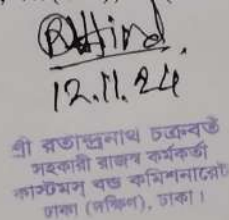 12.11.24
শ্রী ব্রতীন্দ্রনাথ চক্রবর্তী
সহকারী রাজস্ব কর্মকর্তা
কাস্টমস বন্ড কমিশনারেট
ঢাকা (দক্ষিণ), ঢাকা।